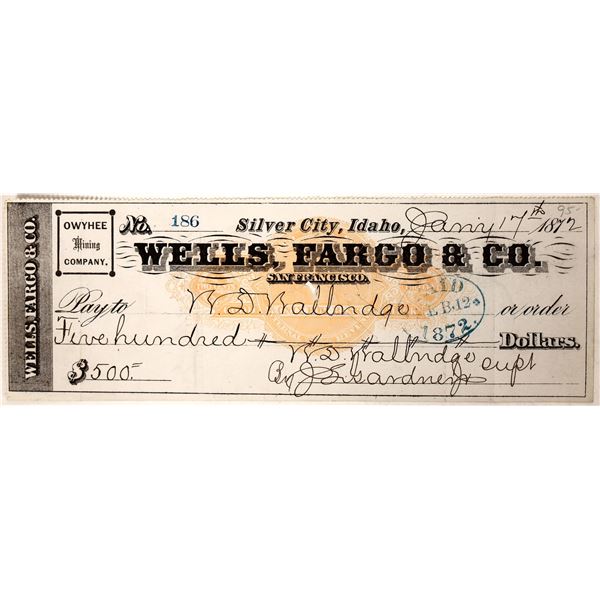 WELLS, FARGO & CO.
OWYHEE
Mining
COMPANY.
No. 186
Silver City, Idaho, Jan'y 17th 1872
95-
WELLS, FARGO & CO.
SAN FRANCISCO.
PAID
FEB. 12
1872.
Pay to W. D. Wallridge or order
Five hundred Dollars.
$500.- W. D. Wallridge
By Gardner Jr supt